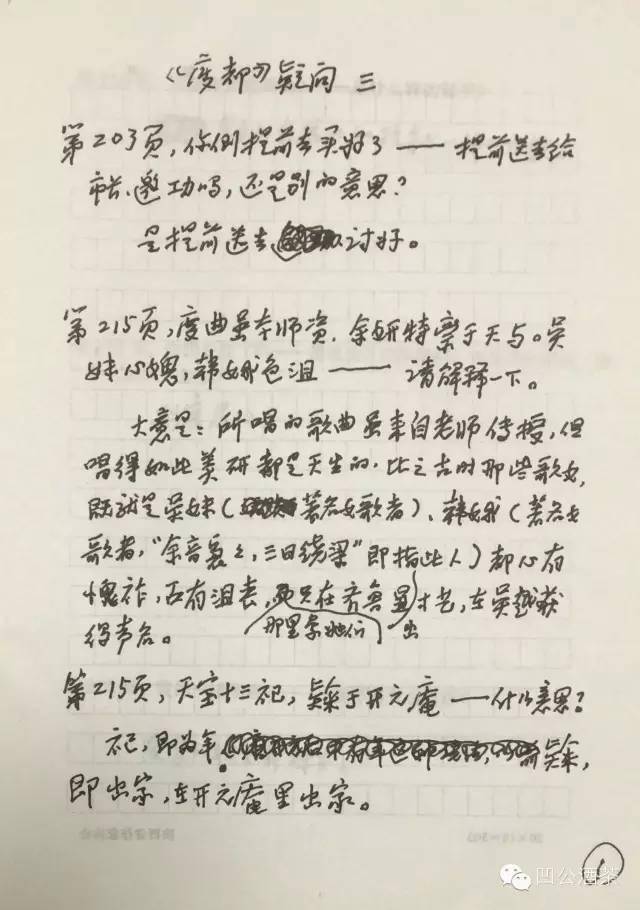 《废都》疑问 三
第203页,你倒提前去买好了——提前送去给
市长、邀功吗,还是别的意思?
是提前送去以讨好。
第215页,度曲虽本师资,余妍特禀于天与。吴
妹心媿,韩娥色沮——请解释一下。
大意是:所唱的歌曲虽来自老师传授,但
唱得如此美妍都是天生的,比之古时那些歌女,
既就是吴妹(著名女歌者)、韩娥(著名女
歌者,"余音裊々,三日绕梁"即指此人)都心有
愧祚,面有沮丧,在齐鲁显才艺,在吴越获
得声名。
那里拿她们 出
第215页,天宝十三祀,于开元庵——什么意思?
祀,即为年。
即出家,在开元庵里出家。
20×15=300
1
凹公酒茶